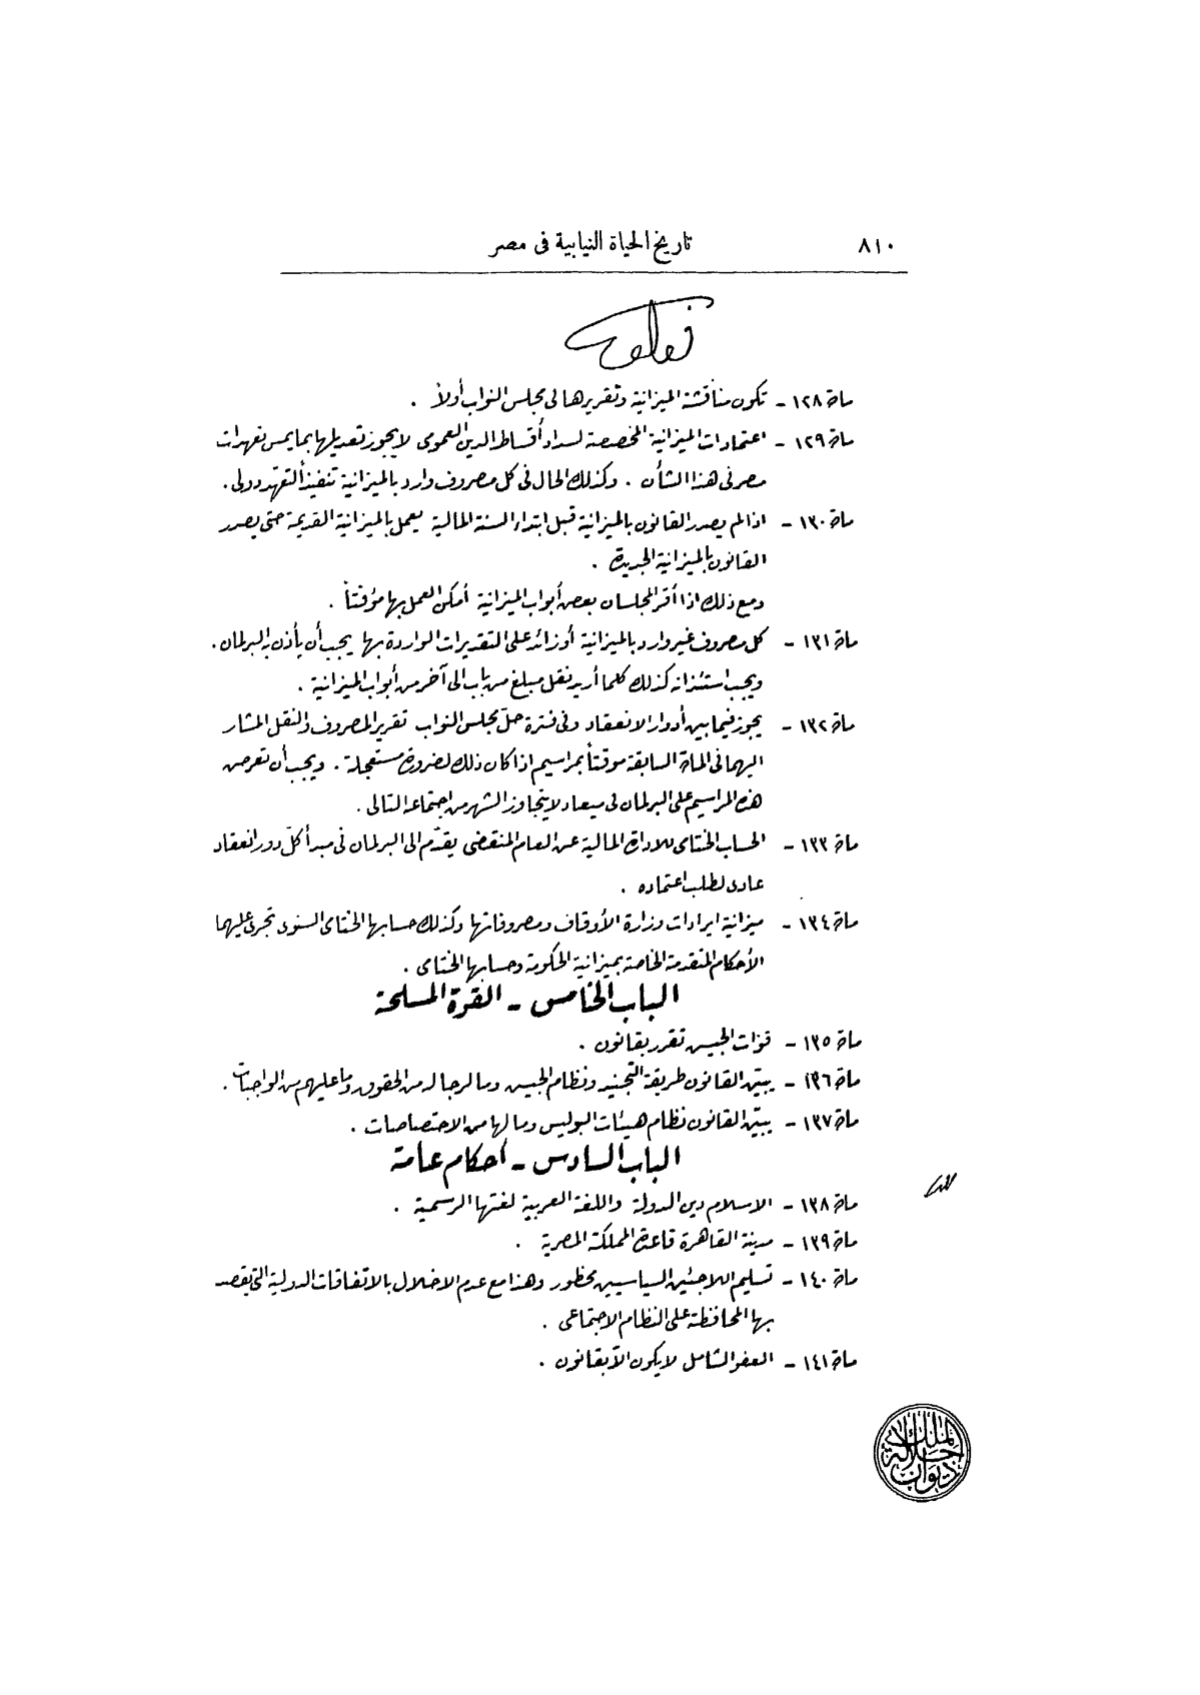 ٨١٠
تاريخ الحياة النيابية فى مصر
مادة ١٢٨ - تكون مناقشة الميزانية وتقريرها فى مجلس النواب أولاً .
مادة ١٢٩ - اعتمادات الميزانية المخصصة لسداد أقساط الدين العمومى لا يجوز تعديلها بما يمس تعهدات
مصر فى هذا الشأن . وكذلك الحال فى كل مصروف وارد بالميزانية تنفيذاً لتعهد دولى .
مادة ١٣٠ - اذا لم يصدر القانون بالميزانية قبل ابتداء السنة المالية يعمل بالميزانية القديمة حتى يصدر
القانون بالميزانية الجديدة .
ومع ذلك اذا أقر المجلسان بعض أبواب الميزانية أمكن العمل بها مؤقتاً .
مادة ١٣١ - كل مصروف غير وارد بالميزانية أو زائد على التقديرات الواردة بها يجب أن يأذن به البرلمان .
ويجب استئذانه كذلك كلما أريد نقل مبلغ من باب الى آخر من أبواب الميزانية .
مادة ١٣٢ - يجوز فيما بين أدوار الانعقاد وفى فترة حلّ مجلس النواب تقرير المصروف والنقل المشار
اليهما فى المادة السابقة موقتاً بمراسيم اذا كان ذلك لضرورة مستعجلة . ويجب أن تعرض
هذه المراسيم على البرلمان فى ميعاد لا يتجاوز الشهر من اجتماعه التالى .
مادة ١٣٣ - الحساب الختامى للادارة المالية عن العام المنقضى يقدّم الى البرلمان فى مبدأ كلّ دور انعقاد
عادى لطلب اعتماده .
مادة ١٣٤ - ميزانية ايرادات وزارة الأوقاف ومصروفاتها وكذلك حسابها الختامى السنوى تجرى عليهما
الأحكام المتقدمة الخاصة بميزانية الحكومة وحسابها الختامى .
الباب الخامس - القوة المسلحة
مادة ١٣٥ - قوّات الجيش تقرر بقانون .
مادة ١٣٦ - يبيّن القانون طريقة التجنيد ونظام الجيش وما لرجاله من الحقوق وما عليهم من الواجبات .
مادة ١٣٧ - يبيّن القانون نظام هيئات البوليس وما لها من الاختصاصات .
الباب السادس - أحكام عامة
مادة ١٣٨ - الاسلام دين الدولة واللغة العربية لغتها الرسمية .
مادة ١٣٩ - مدينة القاهرة قاعدة المملكة المصرية .
مادة ١٤٠ - تسليم اللاجئين السياسيين محظور وهذا مع عدم الاخلال بالاتفاقات الدولية التى يقصد
بها المحافظة على النظام الاجتماعى .
مادة ١٤١ - العفو الشامل لا يكون الّا بقانون .
ديوان جلالة الملك